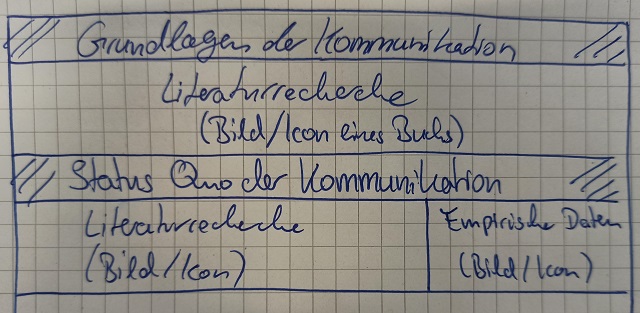 Grundlagen der Kommunikation
Literaturrecherche
(Bild/Icon eines Buchs)
Status Quo der Kommunikation
Literaturrecherche
(Bild/Icon)
Empirische Daten
(Bild/Icon)